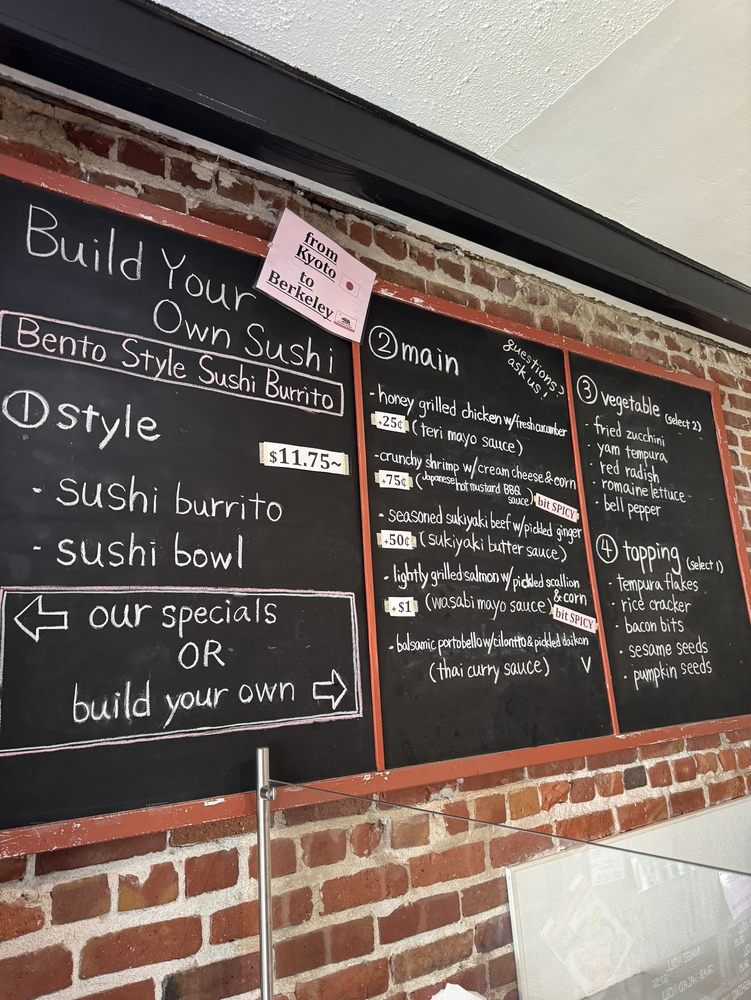 Build Your
Own Sushi
Bento Style Sushi Burrito
① style
$11.75~
· sushi burrito
· sushi bowl
our specials
OR
build your own
from
Kyoto
to
Berkeley
② main
questions?
ask us!
· honey grilled chicken w/fresh cucumber
+25¢ (teri mayo sauce)
· crunchy shrimp w/cream cheese & corn
+75¢ (Japanese hot mustard BBQ
sauce) bit SPICY
· seasoned sukiyaki beef w/pickled ginger
+50¢ (sukiyaki butter sauce)
· lightly grilled salmon w/pickled scallion
& corn
+$1 (wasabi mayo sauce) bit SPICY
· balsamic portobello w/cilantro & pickled daikon
(thai curry sauce) V
③ vegetable (select 2)
· fried zucchini
· yam tempura
· red radish
· romaine lettuce
· bell pepper
④ topping (select 1)
· tempura flakes
· rice cracker
· bacon bits
· sesame seeds
· pumpkin seeds